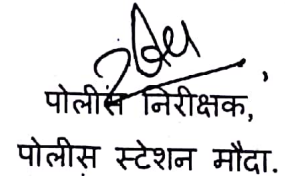 पोलीस निरीक्षक,
पोलीस स्टेशन मौदा.